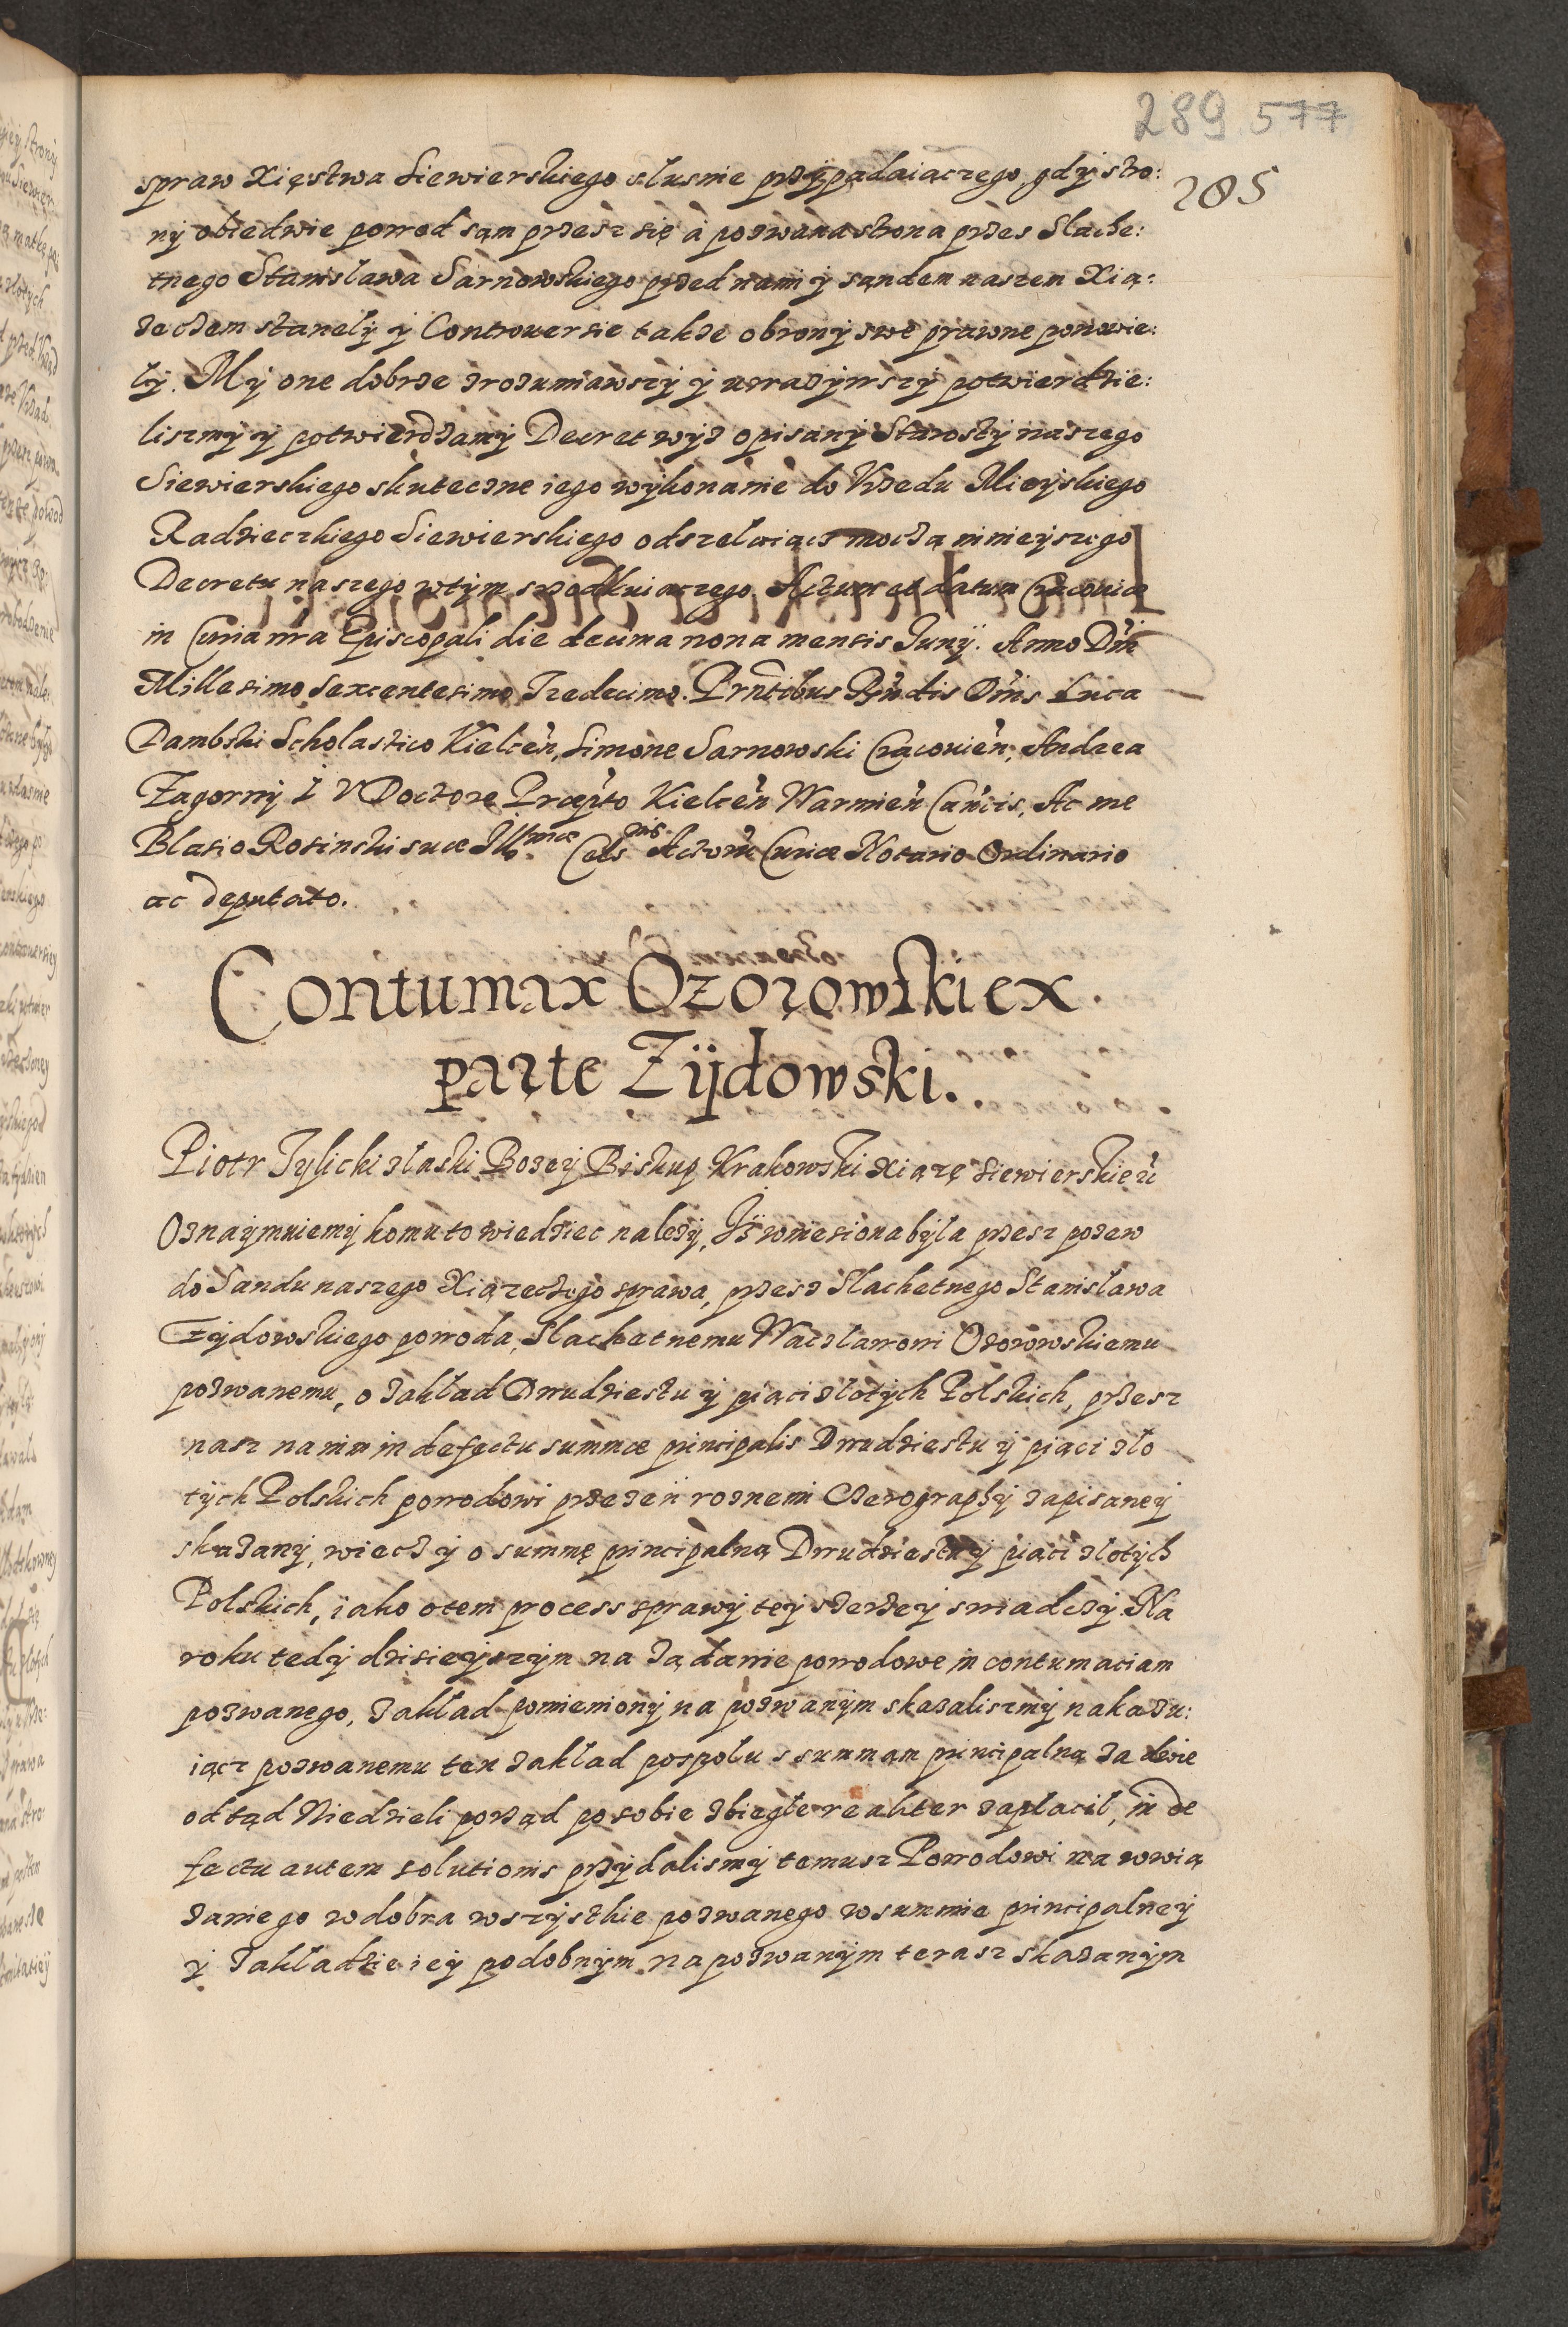 289 577
285
spraw Xięstwa Siewierskiego slusnie przypadaiączego, gdy stro:
ny obiedwie powod sąm przesz się à pozwana strona przes Slache:
tnego Stanisława Sarnowskiego przed nami y sąndem naszem Xią:
zeczem stanely y Controuersie takze obrony swe prawne ponowie:
ly. My one dobrze zrozumiawszy y uwazywszy potwierdzie:
liszmy y potwierdzamy Decret wyz opisany Starosty naszego
Siewierskiego skuteczne iego wykonanie do Vrzedu Mieyskiego
Radzieczkiego Siewierskiego odszelaiącz moczą ninieyszego
Decretu naszego wtym szodkuiaczego. Actum et datum Cracouiæ
in Curia nra Episcopali die decima nona mensis Juny. Anno Dni
Millesimo Sexcentesimo Tredecimo. Prntibus Rndis Dnis Luca
Dambski Scholastico Kielcen, Simone Sarnowski Cracouien, Andrea
Zagorny I V Doctore Præpto Kielcen Warmien Cancis, Ac me
Blasio Rosinski suæ Illmæ Cels nis Actorũ Curiæ Notario Ordinario
ac deputato.
Contumax Ozorowski ex
parte Zÿdowski.
Piotr Tylicki z łaski Bozey Biskup Krakowski Xiążę Siewierskie ů
Oznaymuiemy komu to wiedziec nalezy, Jż wniesiona była przesz pozew
do Sandu naszego Xiązeczego sprawa, przesz Slachetnego Stanisława
Zydowskiego powoda, Slachetnemu Waczlawowi Ozorowskiemu
pozwanemu, o zakład Dwudziestu y piąci złotych Polskich, przesz
nasz na nim in defectu summæ principalis Dwudziestu y piąci zło
tych Polskich powodowi przezeń roznemi Czerography zapisaney
skazany, wiecz y o summę principalną Dwudziestu y piąci złotych
Polskich, iako o tem process sprawy tey szerzey swiadczy. Na
roku tedy dzisieyszym na ządanie powodowe in contumaciam
pozwanego, zakład pomieniony na pozwanym skazaliszmy nakazu:
iącz pozwanemu ten zakład pospołu s summąm principalną za dwie
od tąd Niedzieli porząd po sobie zbiegłe realiter zapłacił, in de
fectu autem solutionis przydalismy temusz Powodowi na wwią
zanie go w dobra wszystkie pozwanego w summie principalney
y zakładzie iey podobnym na pozwanym terasz skazanym